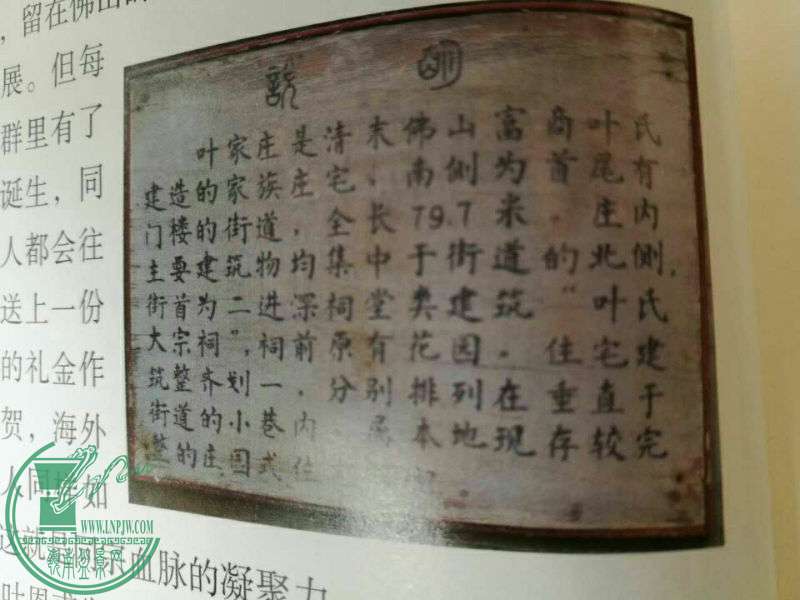 説明
叶家庄是清末佛山富商叶氏
建造的家族庄宅、南侧为首尾有
门楼的街道,全长79.7米,庄内
主要建筑物均集中于街道北侧,
街首为祠二进深祠堂类建筑的叶氏
大宗祠",前有花园。"叶宅建
筑整齐划一,原别排列在住重直于
街道的小巷内分属本地现存较完
整的庄园式住
,留在佛山
展。但每
群里有了
诞生,同
人都会往
送上一份
的礼金作
贺,海外
人同样如
血脉的凝聚力
WWW.LNPJW.COM
岭南盆景网